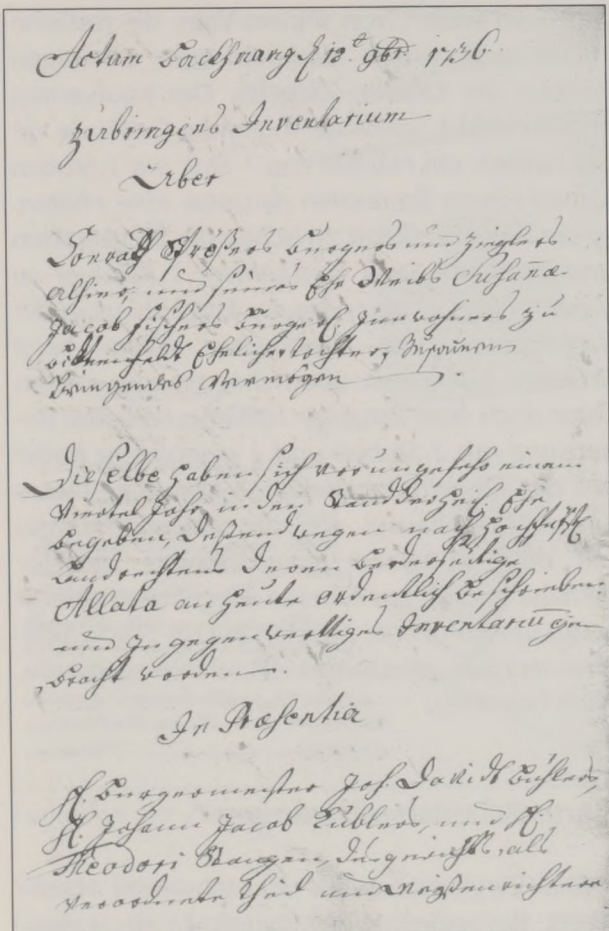 Actum Backhnang d. 13t. 9br. 1736.
Zubringens Inventarium
Über
Conrad Burgers und Zieglers
alhier, und seines Ehe Weibs Susannæ
Jacob Fischers Burgers Innwohners zu
Bittenfeldt Ehelicher tochter, Zusamen
Bringendes Vermögen.
Dieselbe haben sich vor ungefehr einem
Viertel Jahr, in den Stand der Heil. Ehe
begeben, Deßendwegen nach Hochfürstl.
Landrechtens Deren beederseitige
Allata an heute ordentlich beschrieben
und in gegenwerttiges Inventarium ge-
bracht worden.
In Præsentia
H. Burgermeister Joh. Davidt Bühlers,
H. Johann Jacob Küblers, und H.
Theodori des gerichts, als
Verordnete Theil und Weysenrichtere